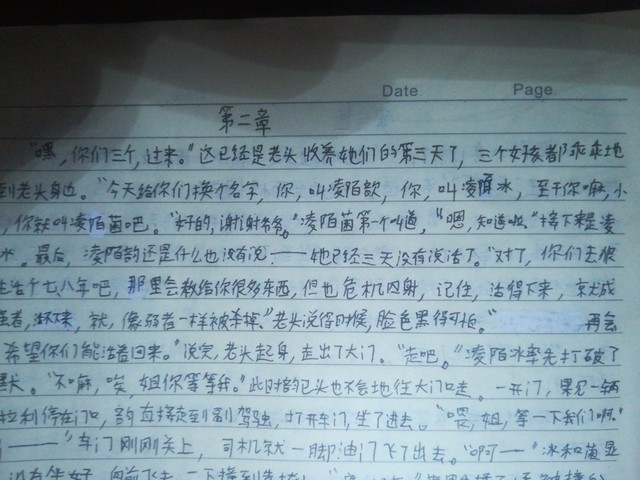 Date. Page.
第二章
"嘿,你们三个,过来。"这已经是老头收养她们的第三天了,三个女孩都乖乖地
到老头身边。"今天给你们换个名字,你,叫凌陌歆,你,叫凌陌冰,至于你嘛,小
,你就叫凌陌茵吧。""好的,谢谢爷爷。"凌陌茵第一个叫道,"嗯,知道啦。"接下来是凌
冰。最后,凌陌韵还是什么也没有说——她已经三天没有说话了。"对了,你们去
生活个七八年吧,那里会教给你很多东西,但也危机四射,记住,活得下来,就成
强者,活不下来,就,像弱者一样被杀掉。"老头说得时候,脸色黑得可怕。" 再会
希望你们能活着回来。"说完,老头起身,走出了大门。"走吧。"凌陌冰率先打破了
默。"不嘛,唉,姐你等等我。"此时的已头也不会地往大门口走。一开门,果见一辆
拉利停在门口,韵直接走到副驾驶,打开车门,坐了进去。"喂,姐,等一下我们啊。"
——"车门刚刚关上,司机就一脚油门飞了出去。"啊——"冰和茵显
没有坐好,向前飞去,一下